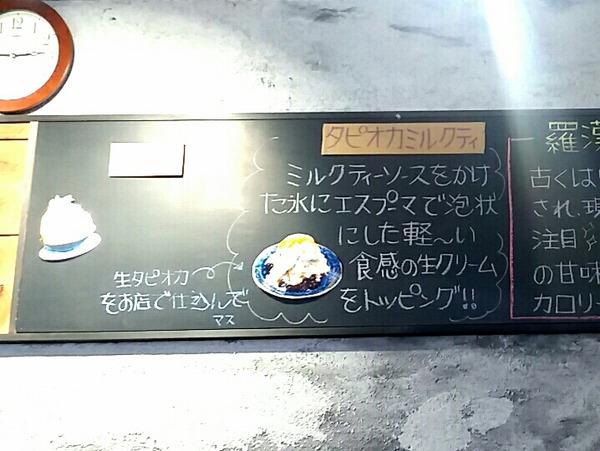 タピオカミルクティ
ミルクティーソースをかけ
た氷にエスプーマで泡状
にした軽〜い
食感の生クリーム
をトッピング!!
生タピオカ
をお店で仕込んで
マス
羅漢
古くは
され、現
注目
の甘味
カロリー